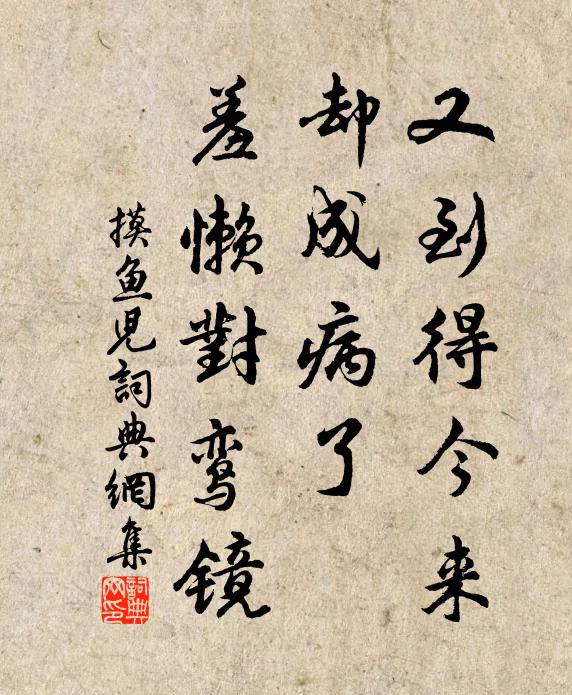 又到得今来
却成病了
羞懒對鸾镜
摸鱼児詞典網集
詞典
网印